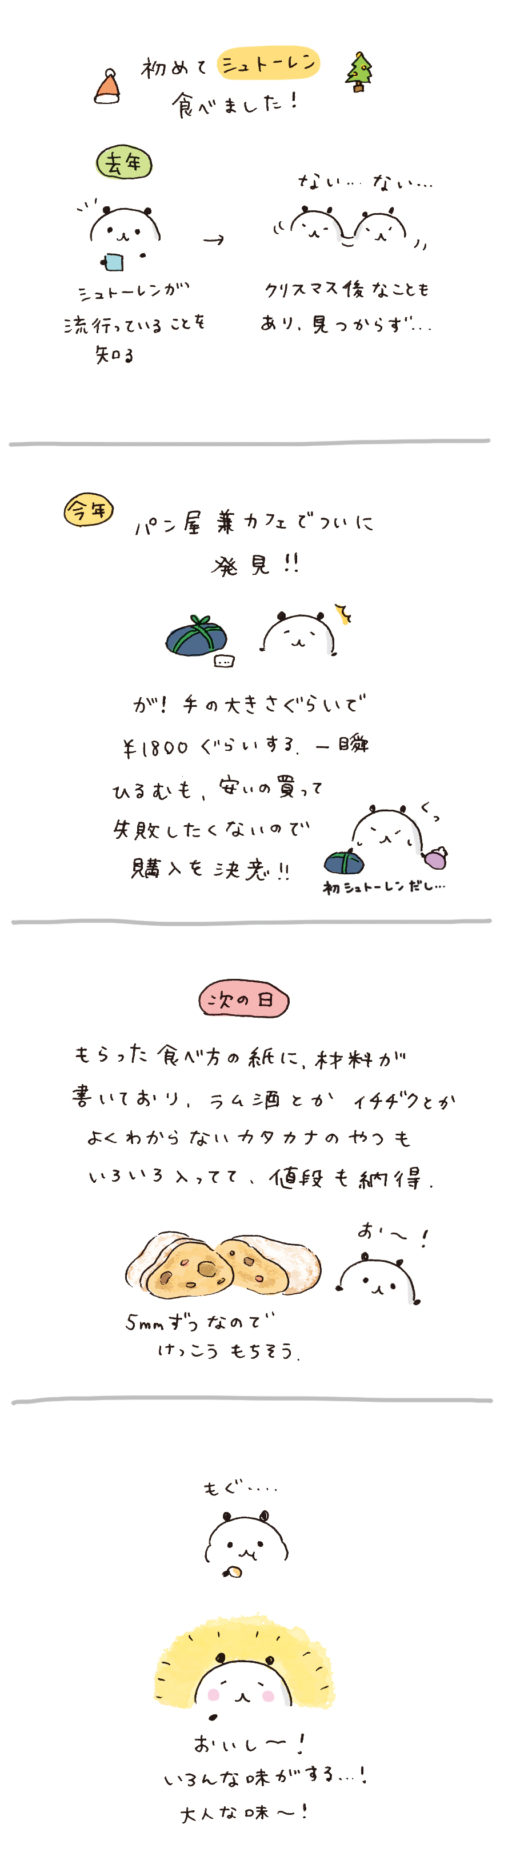 初めてシュトーレン
食べました！
去年
シュトーレンが
流行っていることを
知る
→
ない… ない…
クリスマス後なことも
あり、見つからず…
今年
パン屋兼カフェでついに
発見!!
が！手の大きさぐらいで
¥1800ぐらいする。一瞬
ひるむも、安いの買って
失敗したくないので
購入を決意!!
くっ
初シュトーレンだし…
次の日
もらった食べ方の紙に、材料が
書いており、ラム酒とかイチヂクとか
よくわからないカタカナのやつも
いろいろ入ってて、値段も納得。
お〜！
5mmずつなので
けっこうもちそう。
もぐ‥‥
おいし〜！
いろんな味がする…！
大人な味〜！